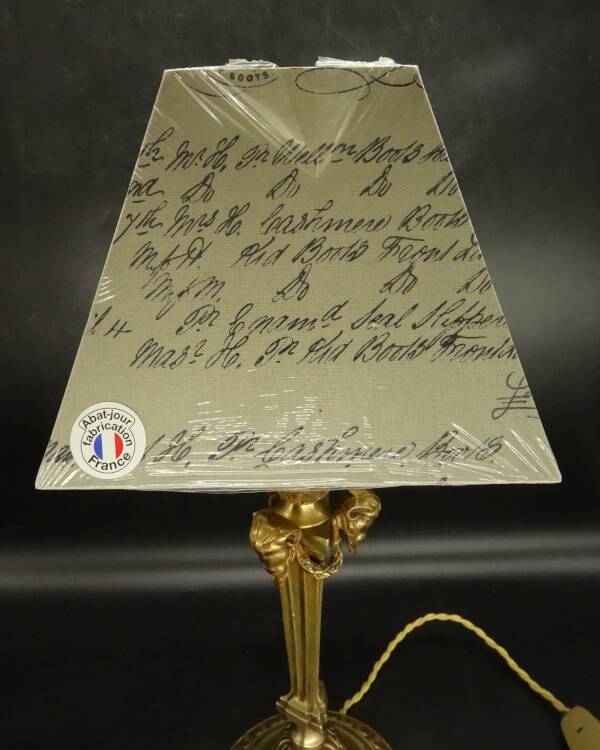 BOOTS
th Mr H, Pr Wellⁿ Boots
Do Do Do Do
7th Mrs H. Cashmere Boots
M & H. Kid Boots Front
My & M. Do Do Do
4 Pr Enamᵈ Seal Slippers
Masr H, Pr Kid Boots Front
H, Pr Cashmere Boots
Abat-jour
fabrication
France